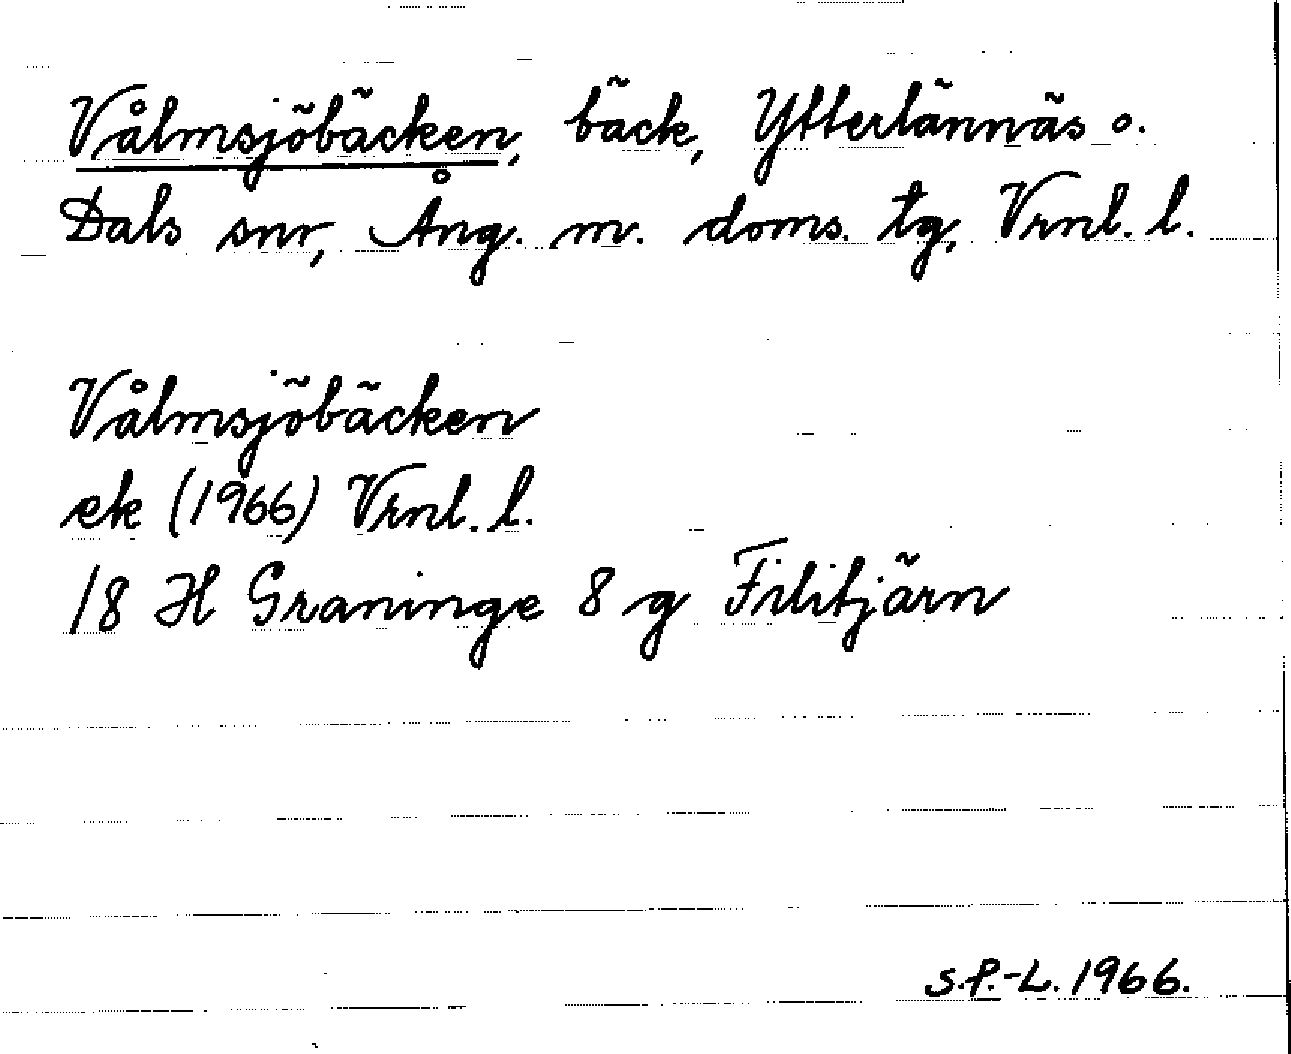 Vålmsjöbäcken, bäck, Ytterlännäs o.
Dals snr, Ång. m. doms. tg, Vrnl. l.
Vålmsjöbäcken
ek (1966) Vrnl. l.
18 H Graninge 8 g Filitjärn
S.P.-L. 1966.